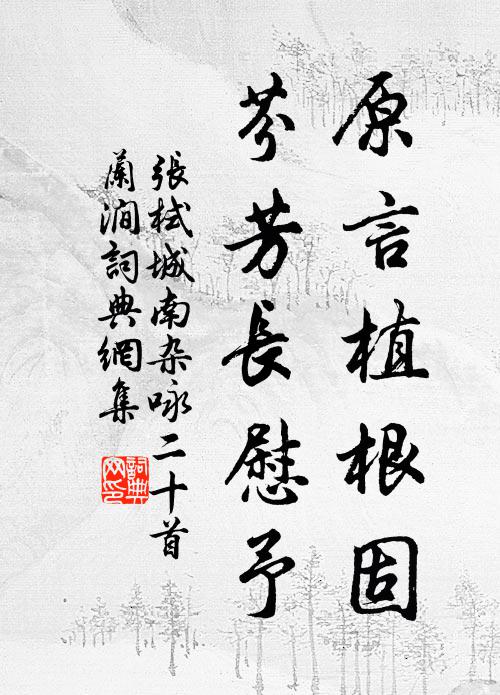 原言植根固
芬芳長慰予
張栻城南杂咏二十首
蘭澗詞典網集
詞典网印